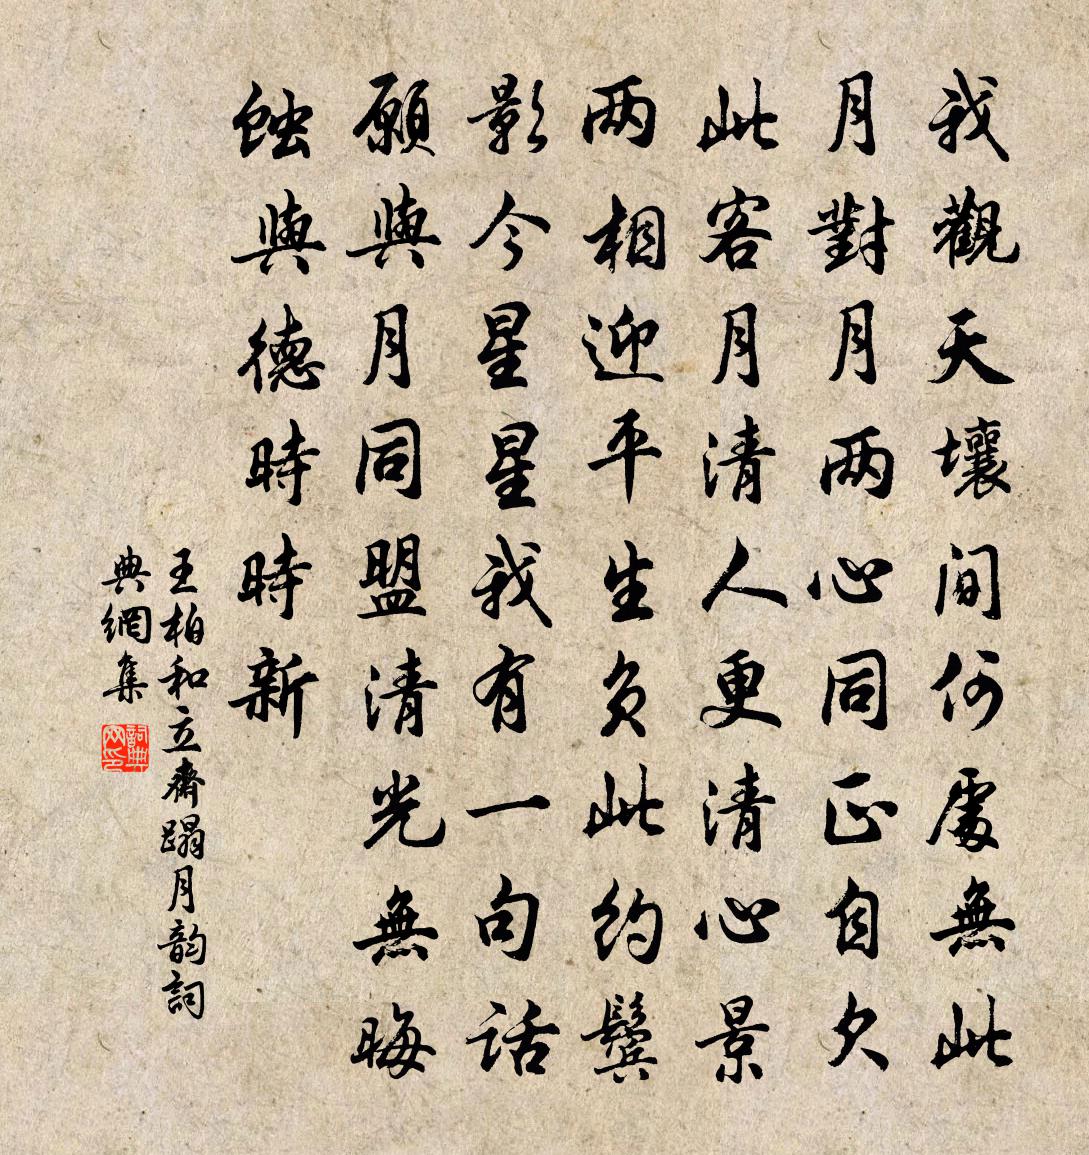 我觀天壤間何處無此
月對月两心同正自欠
此客月清人更清心景
两相迎平生負此約鬓
影今星星我有一句話
願與月同盟清光無晦
蝕與德時時新
王柏和立齋踏月韵詞
典網集
詞典網印